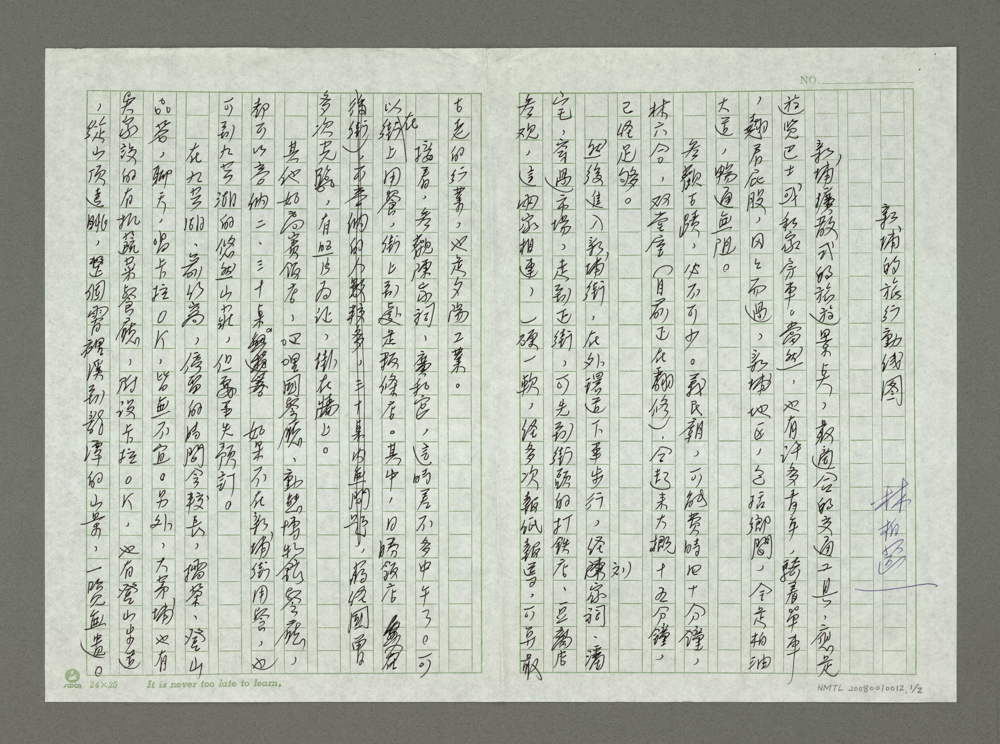 NO.
新埔的旅行動线图
林柏燕
新埔擴散式的旅遊景点，最適合的交通工具，應是
遊览巴士或私家房車。當然，也有许多青年，騎着單車
，翹着屁股，因之而過，新埔地区，包括鄉間，全是柏油
大道，暢通無阻。
参觀古蹟，必不可少。義民廟，可能費時四十分鐘，
林六合，双堂屋（目前正在翻修），合起来大概十五分鐘，
已经足够。
然後進入新埔街，在外環道下車步行，经陳家祠、劉、潘
宅，穿過市場，走到正街，可先到街頭的打鉄店、豆腐店
参观，這兩家相連，一硬一軟，经多次報紙報導，可算最
古老的行業，也是夕陽工業。
接着，参觀陳家祠，廣和宫，這時差不多中午了。可
以在街上用餐，街上到處是粄條店。其中，日勝飯店
(橫街)，可容納的人數較多，三十桌内無問題，蒋经國曾
多次光臨，有照片為证，掛在牆上。
其他如為賓飯店，哩哩園餐廳，動態博物館餐廳，
都可以容纳二、三十桌。如果不在新埔街用餐，也
可到九芎湖的悠然山莊，但要事先預訂。
在九芎湖、箭竹窩，停留的時間会較長，擂茶、登山
品茗，聊天，唱卡拉OK，皆無不宜。另外，大茅埔也有
吳家設的有机蔬菜餐廳，附設卡拉OK，也有登山步道
，從山頂遠眺，整個霄裡溪到龍潭的山景，一覽無遺。
24×25
It is never too late to learn.
NMTL 20080010012, 1/2